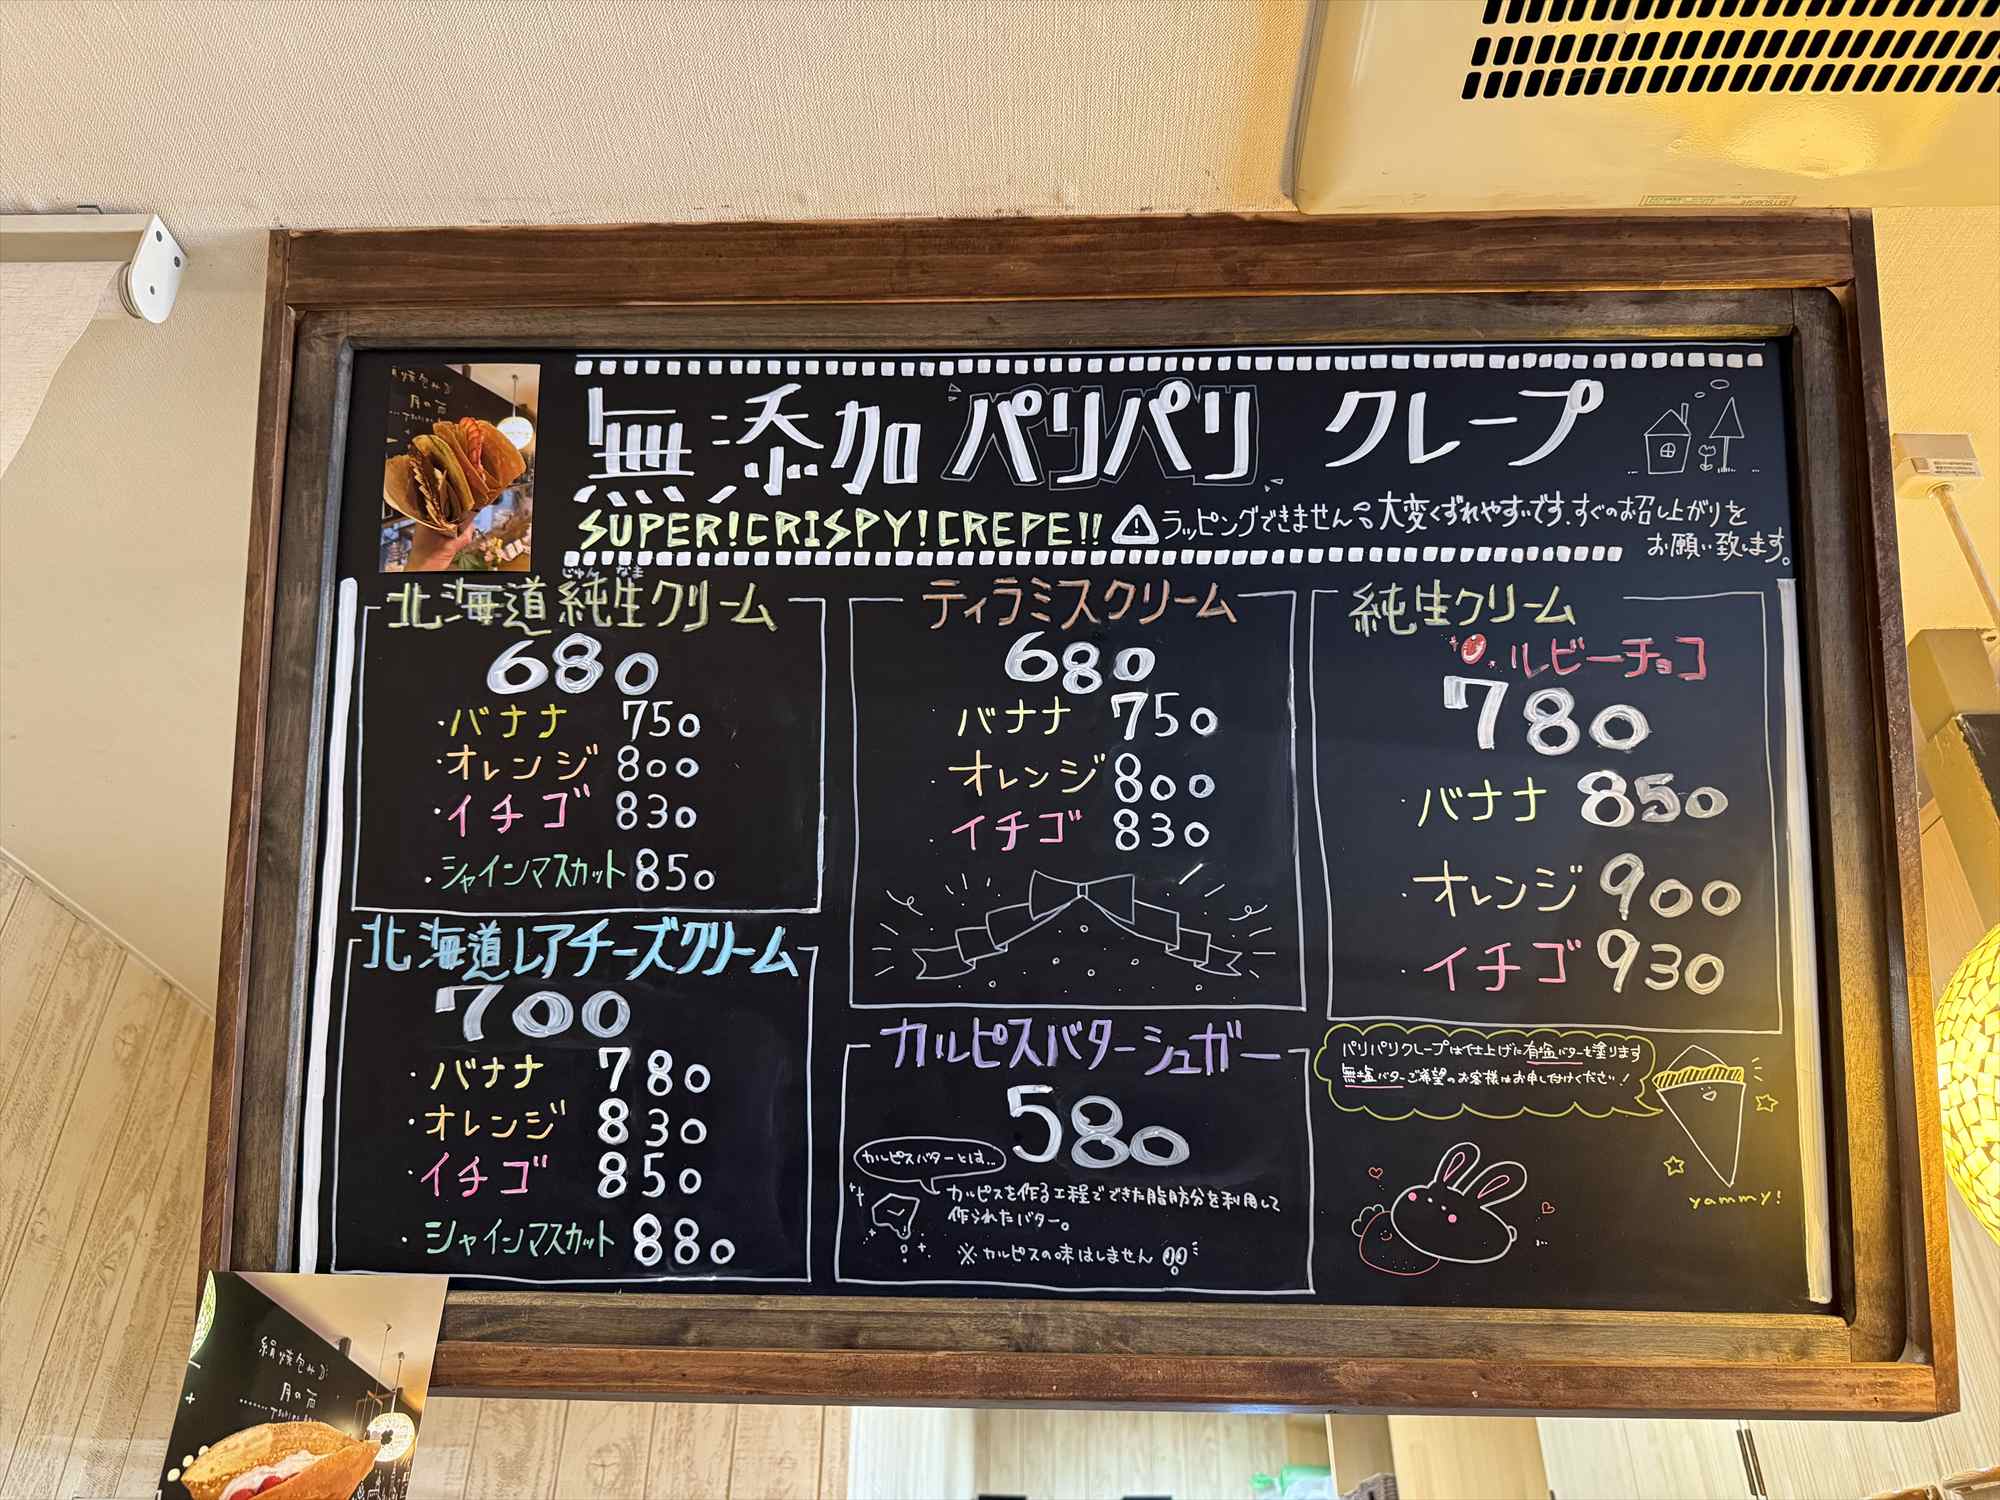 無添加 パリパリ クレープ
SUPER!CRISPY!CREPE!!
ラッピングできません。大変くずれやすいです。すぐのお召し上がりを
お願い致します。
じゅん なま
北海道 純生クリーム
680
・バナナ 750
・オレンジ 800
・イチゴ 830
・シャインマスカット 850
北海道レアチーズクリーム
700
・バナナ 780
・オレンジ 830
・イチゴ 850
・シャインマスカット 880
ティラミスクリーム
680
・バナナ 750
・オレンジ 800
・イチゴ 830
カルピスバターシュガー
580
カルピスバターとは...
カルピスを作る工程でできた脂肪分を利用して
作られたバター。
※カルピスの味はしません!!
純生クリーム
ルビーチョコ
780
・バナナ 850
・オレンジ 900
・イチゴ 930
パリパリクレープは仕上げに有塩バターを塗ります
無塩バターご希望のお客様はお申し付けください!
yammy!
絹焼包み